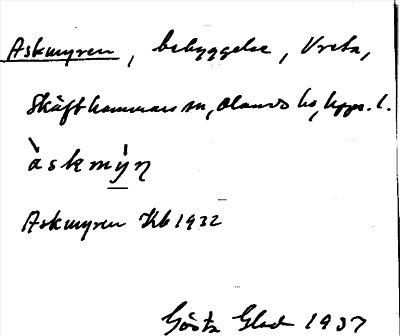 Askmyren, bebyggelse, Vreta,
Skäfthammars sn, Olands hd, Upps. l.
àskmýn
Askmyren Kb 1932
Gösta Glad 1937